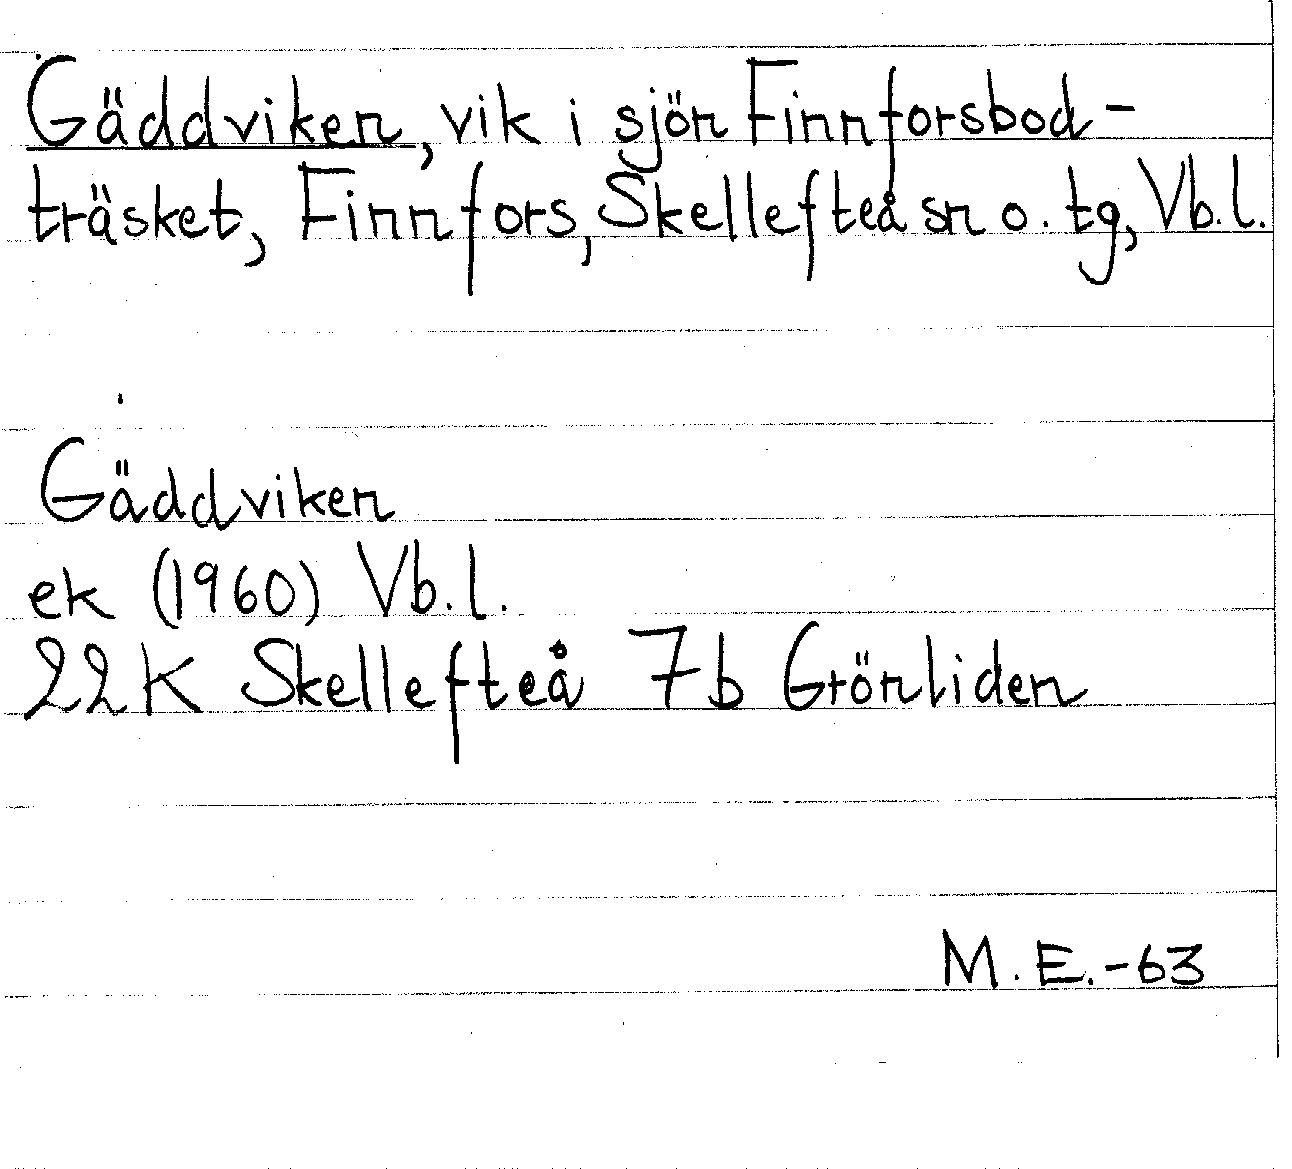 Gäddviken, vik i sjön Finnforsbod-
träsket, Finnfors, Skellefteå sn o. tg, Vb.l.
Gäddviken
ek (1960) Vb.l.
22K Skellefteå 7b Grönliden
M.E.-63